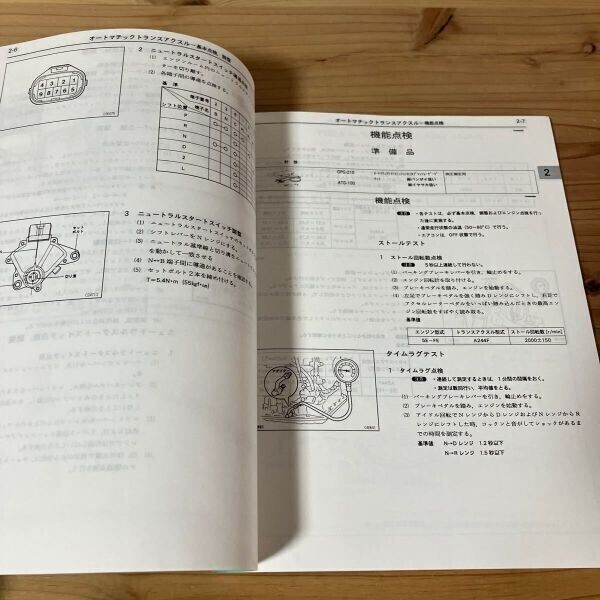 2-6
オートマチックトランスアクスル−基本点検、調整
2 ニュートラルスタートスイッチ
(1) エンジンルーム内の
ターを切り離す。
(2) 各端子間の導通を点検する。
基 準
端子番号
シフト位置
端子名
P
R
N
D
2
L
4 3 2 1
9 8 7 6 5
3 ニュートラルスタートスイッチ調整
(1) ニュートラルスタートスイッチの
(2) シフトレバーをNレンジにする。
(3) ニュートラル基準線と切り溝を
を動かして一致させる
(4) N↔B 端子間に導通があることを確認する
(5) セットボルト2本を締め付ける。
T=5.4N・m {55kgf・cm}
オートマチックトランスアクスル−機能点検
2-7
機能点検
準 備 品
2
計 器
㈱バンザイ扱い
㈱イヤサカ扱い
油圧測定用
機能点検
注意 ・各テストは、必ず基本点検、調整およびエンジン点検を行っ
た後に実施する。
・通常走行状態の油温（50〜80℃）で行う。
・エアコンは、OFF 状態で行う。
ストールテスト
1 ストール回転数点検
注意 5 秒以上連続して行わない。
(1) パーキングブレーキレバーを引き、輪止めをする。
(2) エンジン回転計を取り付ける。
(3) ブレーキペダルを踏み、エンジンを始動する。
(4) 左足でブレーキペダルを強く踏みDレンジにシフトし、右足で
アクセルレーターペダルをいっぱい踏み込んだときの最高エン
ジン回転数をすばやく読み取る。
基準値
エンジン型式 トランスアクスル型式 ストール回転数 [r/min]
5E−FE A244F 2000±150
タイムラグテスト
1 タイムラグ点検
注意 ・連続して測定するときは、1 分間の間隔をおく。
・測定は数回行い、平均値をとる。
(1) パーキングブレーキレバーを引き、輪止めをする。
(2) ブレーキペダルを踏み、エンジンを始動する。
(3) アイドル回転でNレンジからDレンジおよびNレンジからR
レンジにシフトした時、コックンと音がしてショックがあるま
での時間を測定する。
基準値 N→D レンジ 1.2 秒以下
N→R レンジ 1.5 秒以下